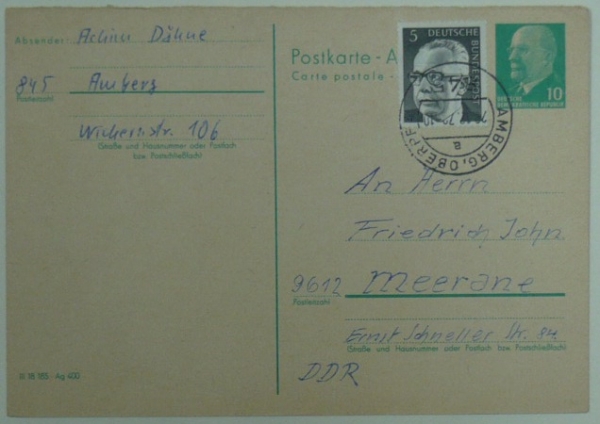 Absender: Achim Dähne
845 Amberg
Postleitzahl
Wichernstr. 106
(Straße und Hausnummer oder Postfach
bzw. Postschließfach)
III 18 185 - Ag 400
Postkarte - A
Carte postale -
5
DEUTSCHE
BUNDESPOST
10
DEUTSCHE
DEMOKRATISCHE REPUBLIK
AMBERG, OBERPF
a
An Herrn
Friedrich John
9612 Meerane
Postleitzahl
Ernst Schneller Str. 84
(Straße und Hausnummer oder Postfach bzw. Postschließfach)
DDR